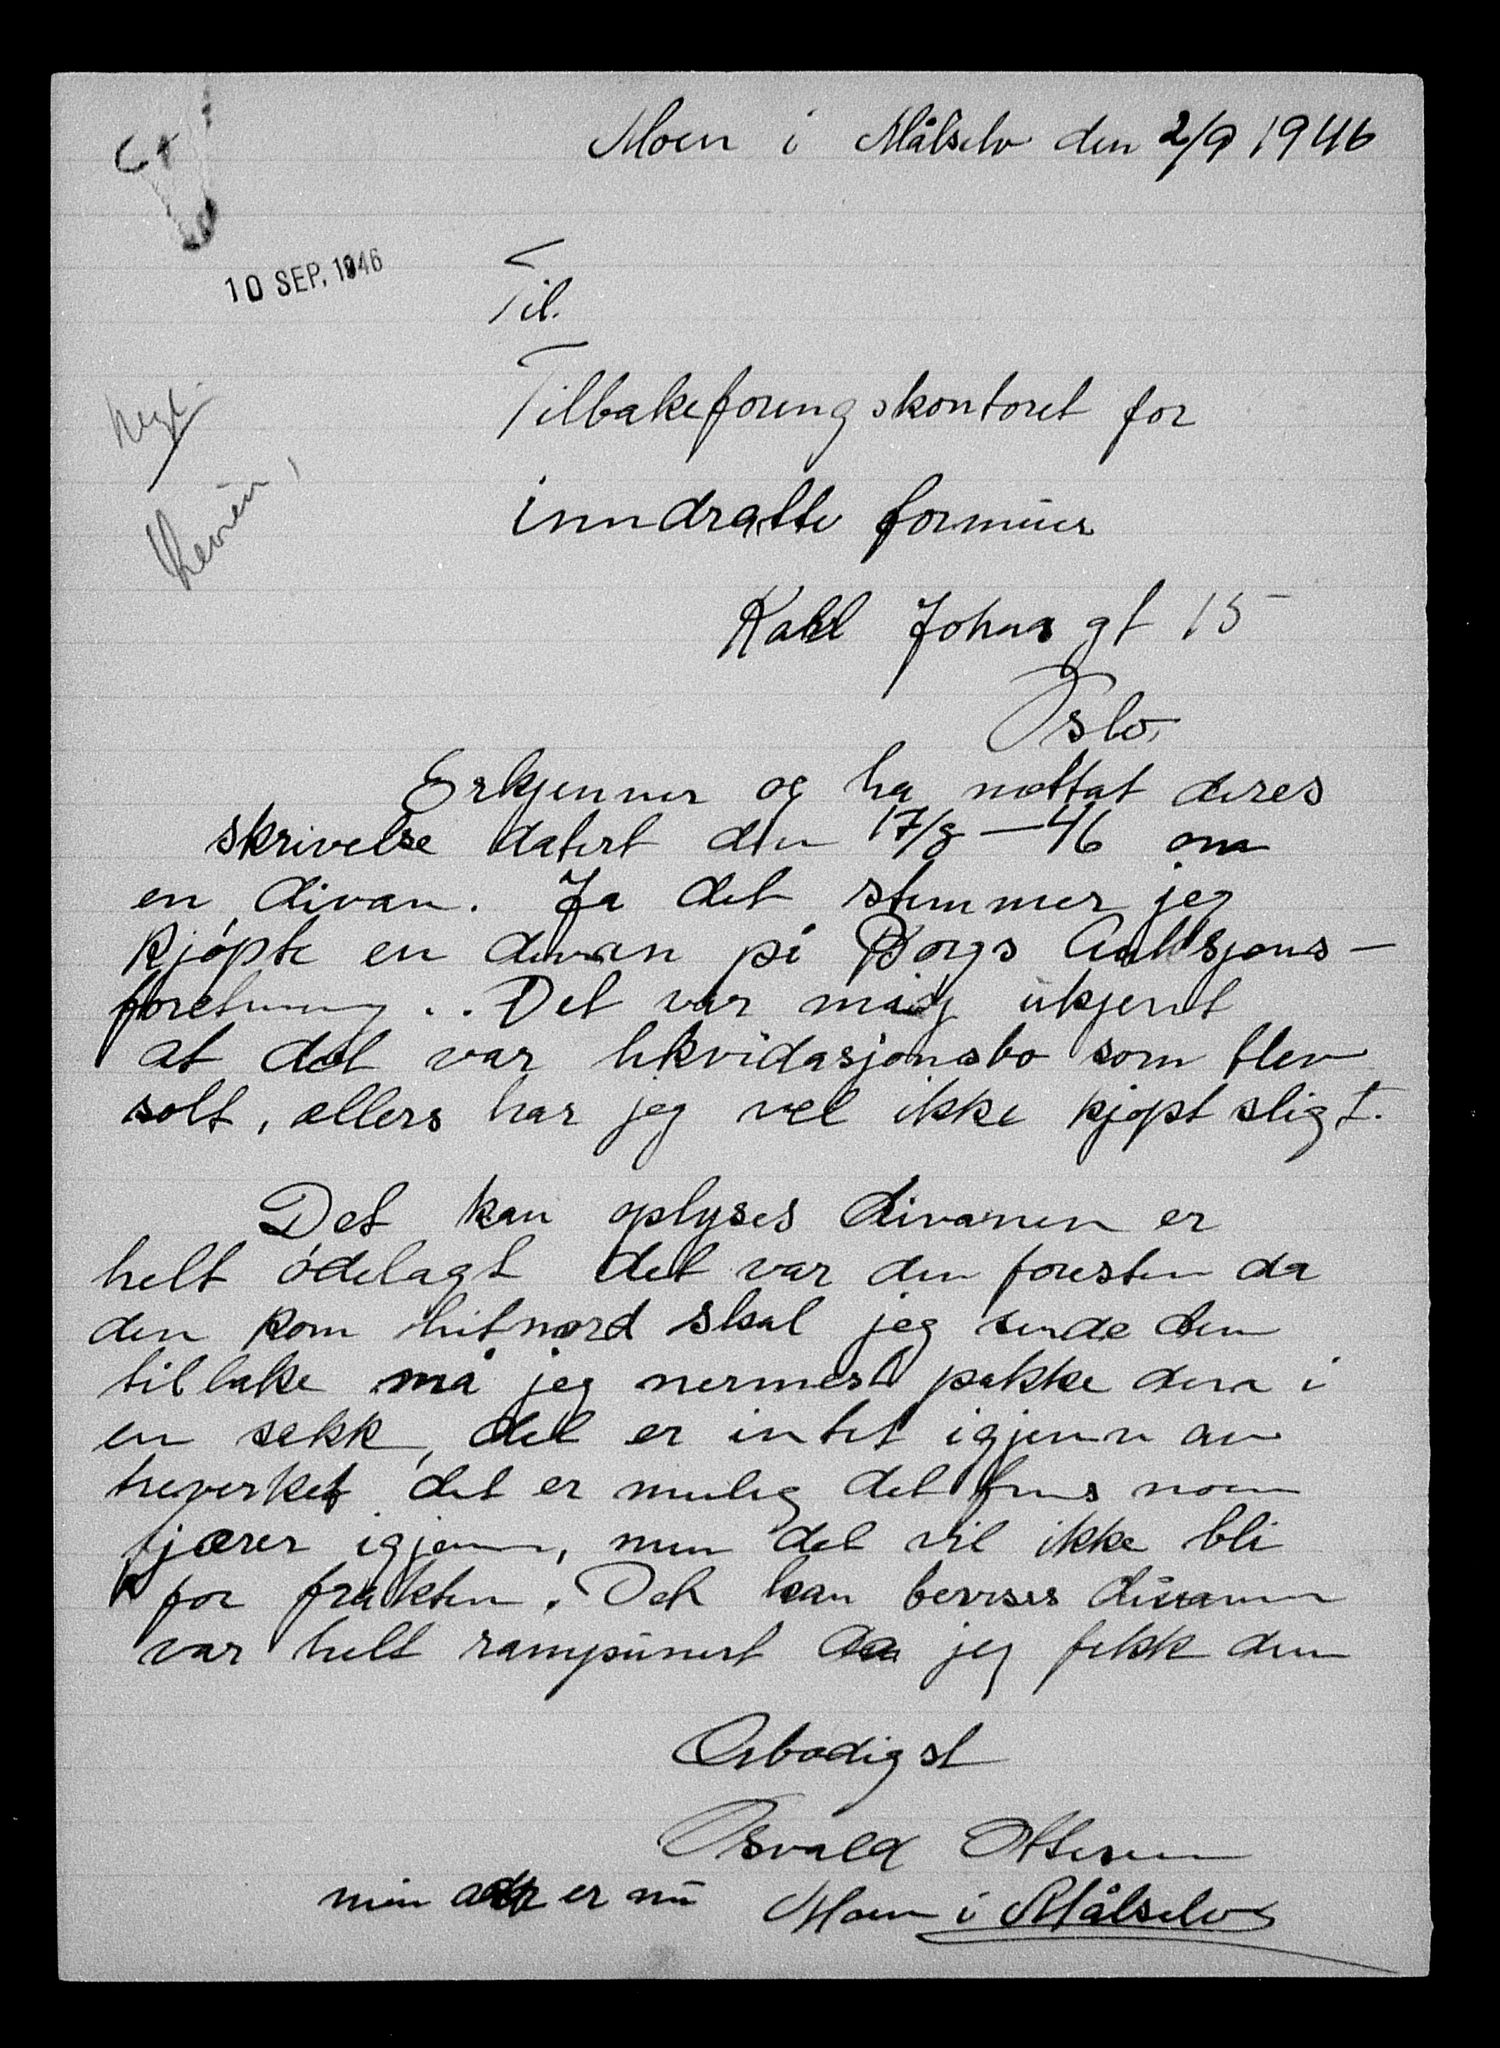 Moen i Målselv den 2/9 1946
10 SEP. 1946
Til.
Tilbakeforingskontoret for
inndratte formuer
Karl Johns gt 15
Oslo.
Erkjenner og ha mottat deres
skrivelse datert den 17/8 – 46 om
en divan. Ja det stemmer jeg
kjøpte en divan på Borgs Auksjons-
foretning.. Det var mig ukjent
at det var likvidasjonsbo som blev
solt, ellers har jeg vel ikke kjøpt sligt.
Det kan oplyses divanen er
helt ødelagt det var den foresten da
den kom hitnord skal jeg sende den
tilbake må jeg nermest pakke den i
en sekk, det er intet igjenn av
treverket det er mulig det fins noen
fjærer igjenn, men det vil ikke bli
for frakten. Det kan bevises divanen
var helt rampunert da jeg fikk den
Ærbødigst
Osvald Ottesen
min adr er nu Moen i Målselv